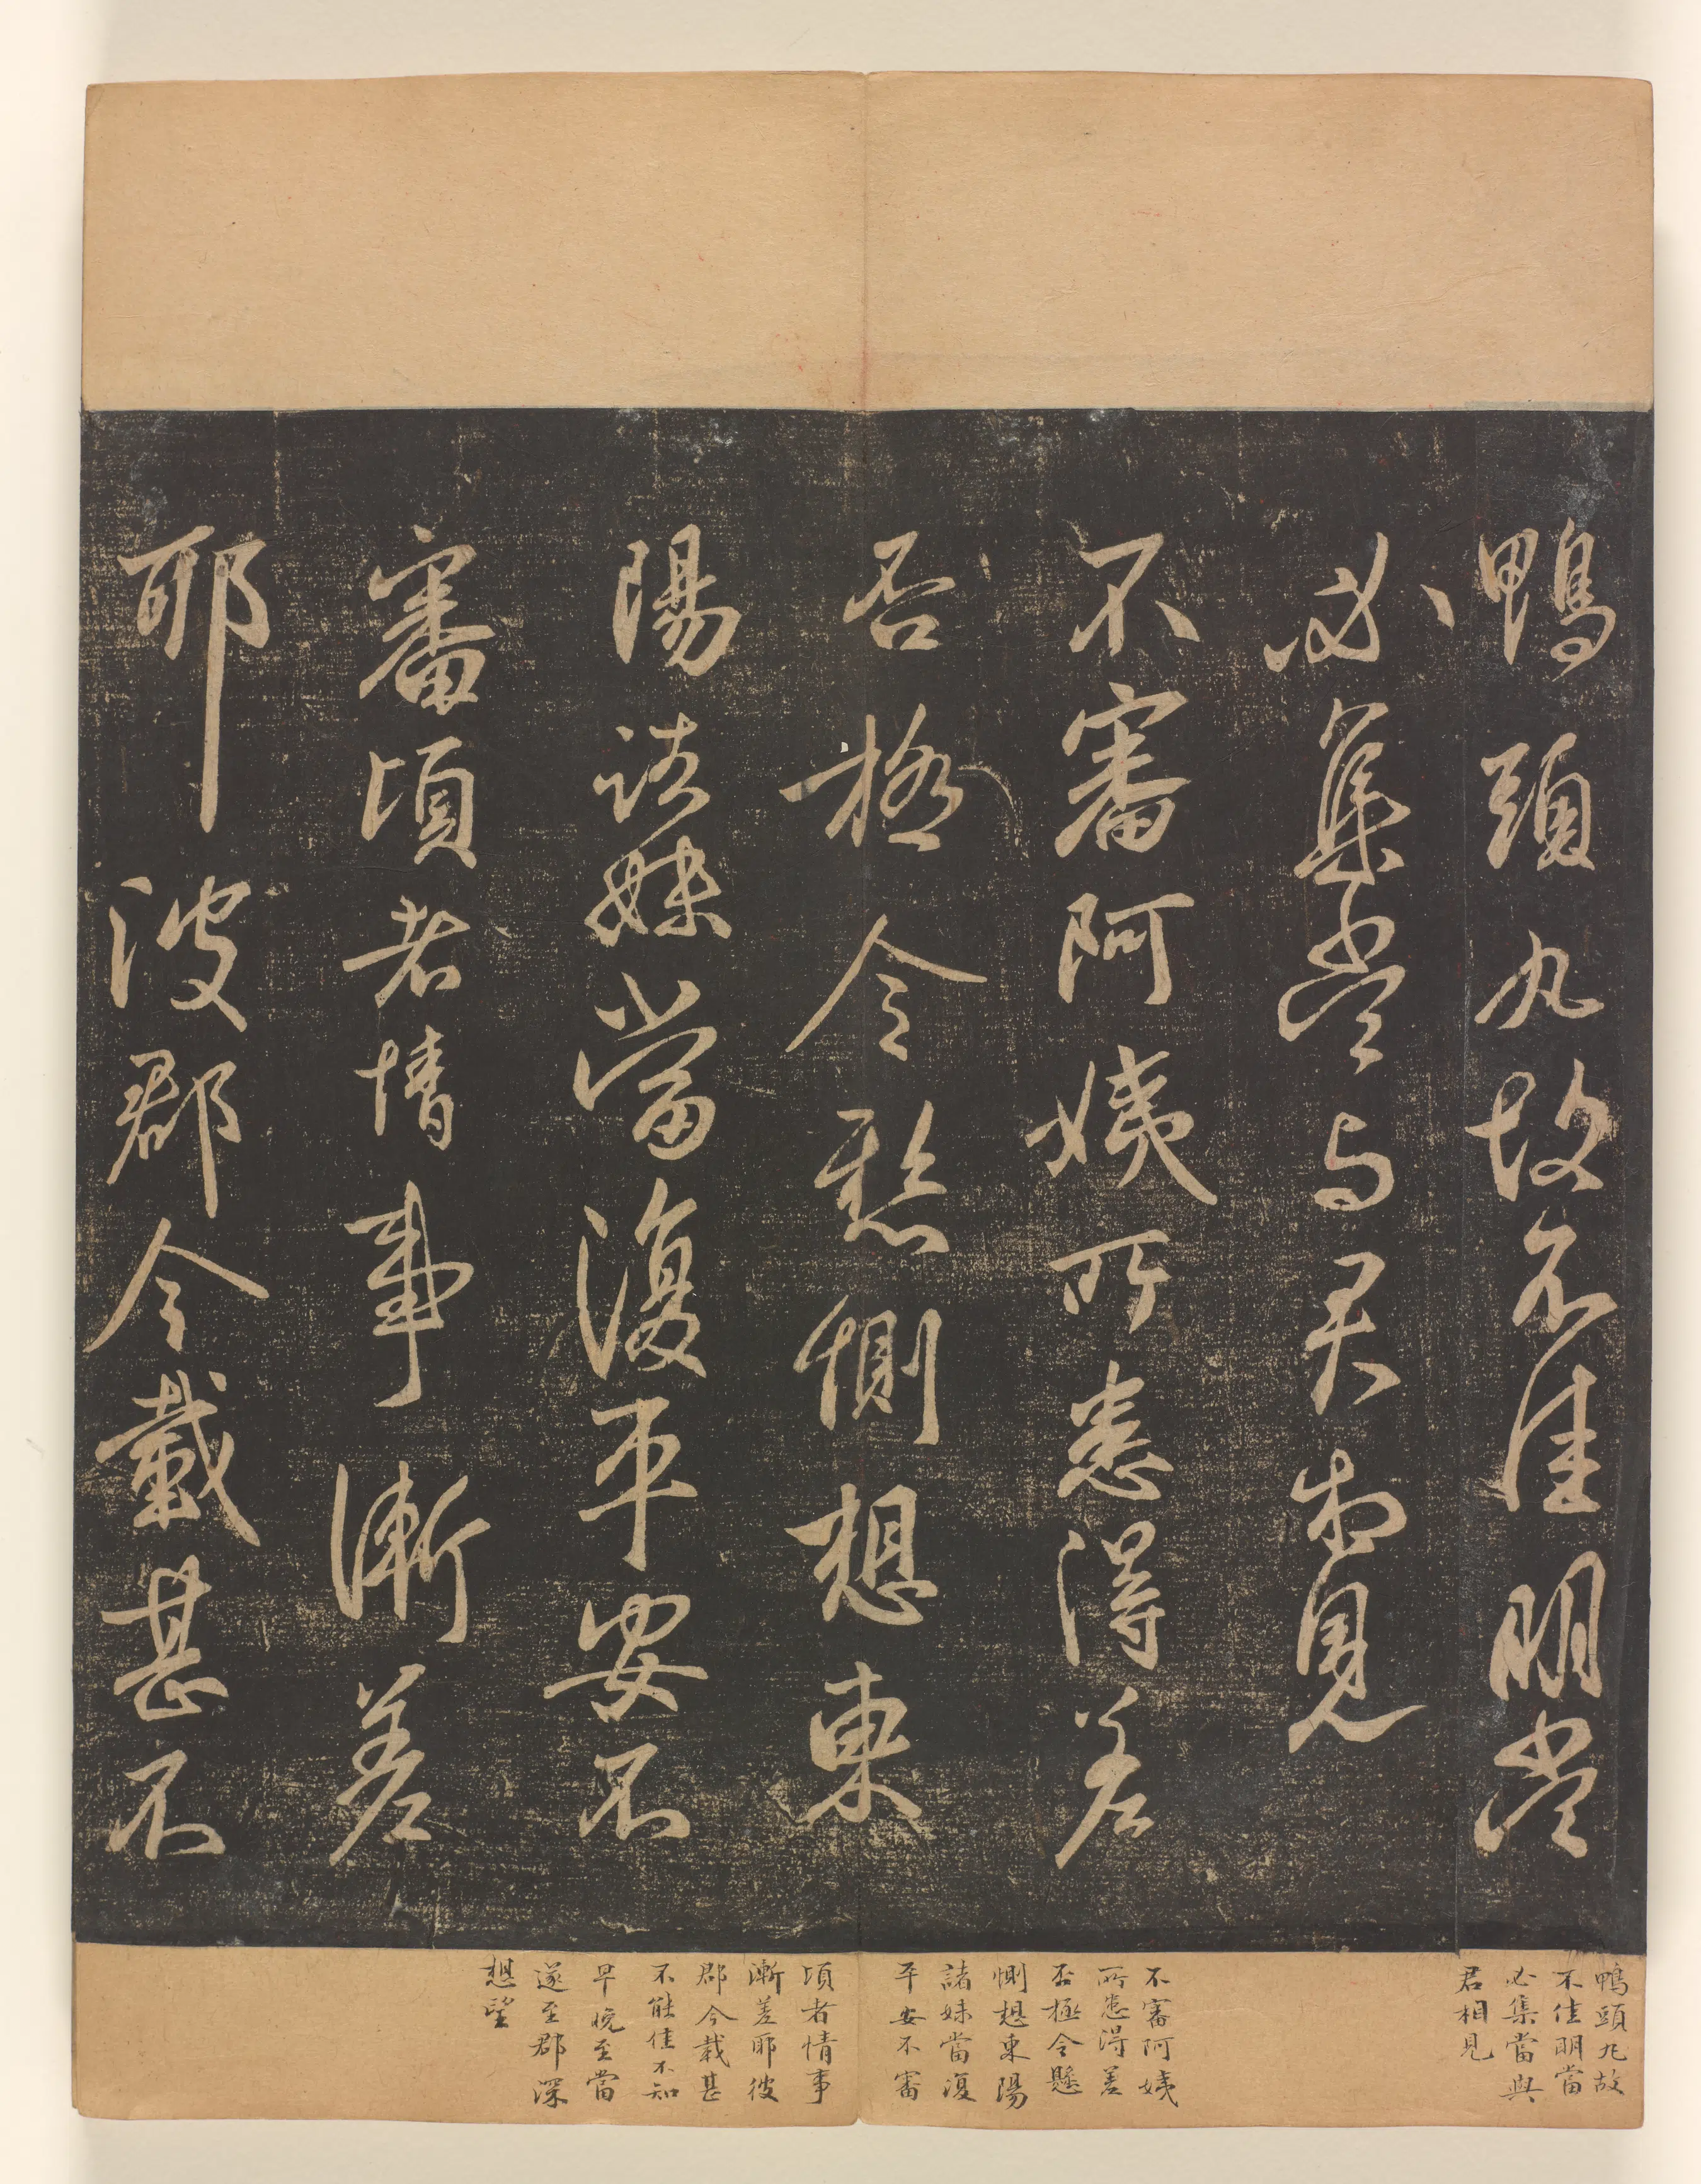 鴨頭丸故不佳明當
必集當与君相見
不審阿姨所患得差
否極令懸惻想東
陽諸妹當復平安不
審頃者情事漸差
耶彼郡今載甚不
鴨頭丸故
不佳明當
必集當與
君相見
不審阿姨
所患得差
否極令懸
惻想東陽
諸妹當復
平安不審
頃者情事
漸差耶彼
郡今載甚
不能佳不知
早晚至當
遂至郡深
想望